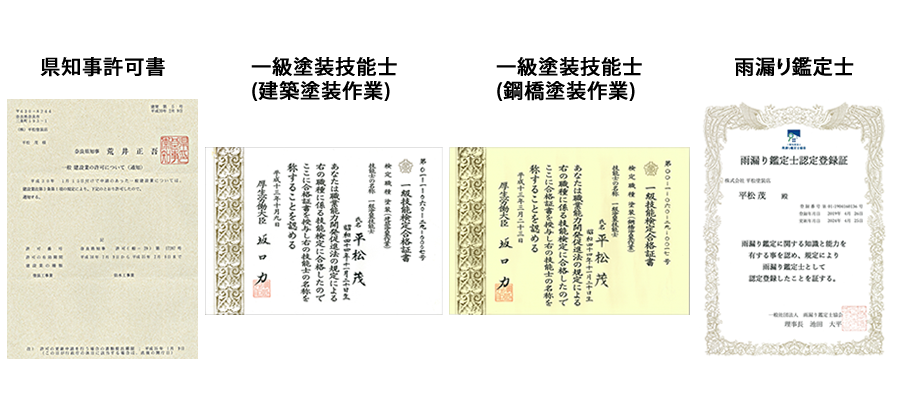 県知事許可書
一級塗装技能士
(建築塗装作業)
一級塗装技能士
(鋼橋塗装作業)
雨漏り鑑定士
奈良県知事 荒井正吾
一般建設業の許可について(通知)
記
一級技能検定合格証書
技能士の名称 一級塗装技能士
氏名 平松 茂
昭和四十四年十一月三十日生
あなたは職業能力開発促進法の規定による
右の職種に係る技能検定に合格したので
ここに合格証書を授与し右の技能士の名称を
称することを認める
平成十三年十月九日
厚生労働大臣 坂口 力
一級技能検定合格証書
技能士の名称 一級塗装技能士
氏名 平松 茂
昭和四十四年十一月三十日生
あなたは職業能力開発促進法の規定による
右の職種に係る技能検定に合格したので
ここに合格証書を授与し右の技能士の名称を
称することを認める
平成十三年三月二十三日
厚生労働大臣 坂口 力
雨漏り鑑定士認定登録証
株式会社 平松塗装店
平松 茂 殿
雨漏り鑑定に関する知識と能力を
有する事を認め、規定により
雨漏り鑑定士として
認定登録したことを証する。
一般社団法人 雨漏り鑑定士協会
理事長 池田 大平